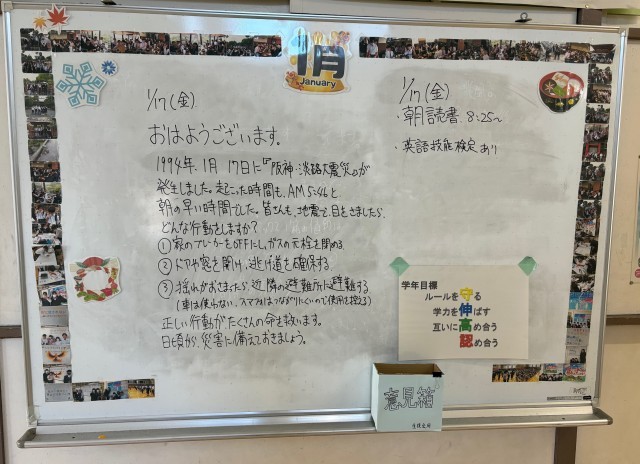 1月
January
1/17(金)
おはようございます。
1994年 1月 17日に『阪神・淡路大震災』が
発生しました。起こった時間も、AM 5:46と
朝の早い時間でした。皆さんも、地震で目をさましたら、
どんな行動をしますか?
① 家のブレーカーをOFFにし、ガスの元栓を閉める
② ドアや窓を開け、逃げ道を確保する
③ 揺れがおさまったら、近隣の避難所に避難する
(車は使わない。スマホはつながりにくいので使用を控える)
正しい行動がたくさんの命を救います。
日頃から、災害に備えておきましょう。
1/17(金)
・朝読書 8:25〜
・英語技能検定 あり
学年目標
ルールを守る
学力を伸ばす
互いに高め合う
認め合う
意見箱